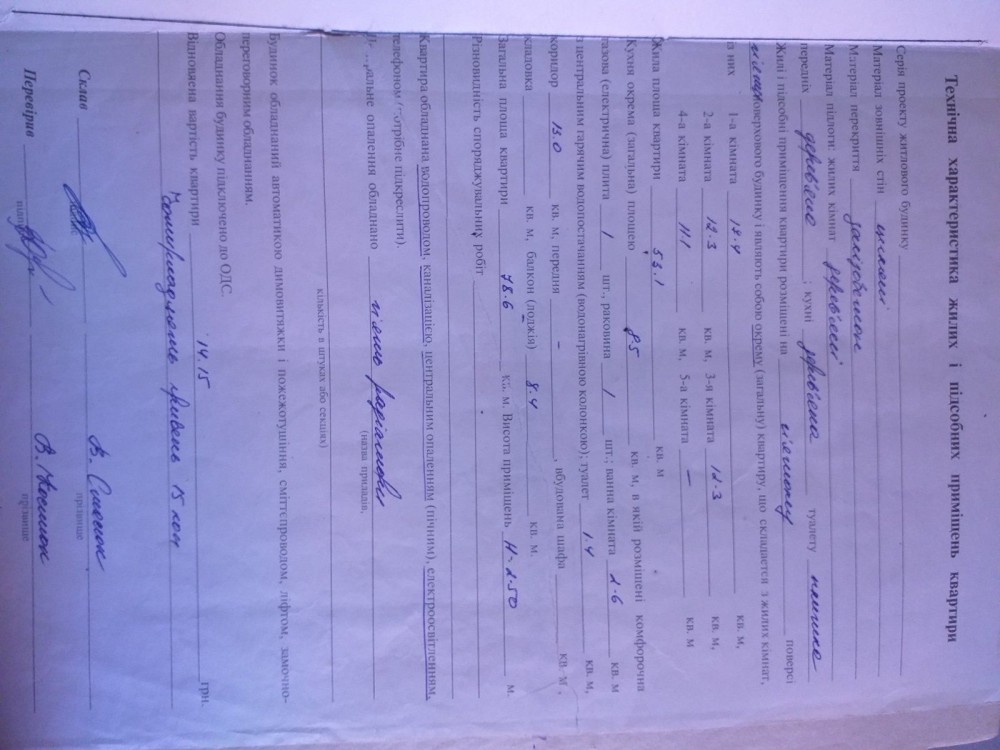 Технічна характеристика жилих і підсобних приміщень квартири
Серія проекту житлового будинку
Матеріал зовнішніх стін шлакі
Матеріал перекриття залізобетон
Матеріал підлоги: жилих кімнат дерев'яні
передніх дерев'яна ; кухні дерев'яна туалету плитка
Жилі і підсобні приміщення квартири розміщені на п'ятому поверсі
поверхового будинку і являють собою окрему (загальну) квартиру, що складається з жилих кімнат,
із них
1-а кімната 17.4 кв. м,
2-а кімната 12.3 кв. м, 3-я кімната 12.3 кв. м,
4-а кімната 11.1 кв. м, 5-а кімната — кв. м
Жила площа квартири 53.1 кв. м
Кухня окрема (загальна) площею 8.5 кв. м, в якій розміщені комфорочна
газова (електрична) плита 1 шт., раковина 1 шт.; ванна кімната 2.6 кв. м
з центральним гарячим водопостачанням (водонагрівною колонкою); туалет 1.4 кв. м,
коридор 13.0 кв. м, передня – , вбудована шафа кв. м,
кладовка кв. м, балкон (лоджія) 8.4 кв. м.
Загальна площа квартири 78.6 кв. м. Висота приміщень H-2.50 м.
Різновидність споряджувальних робіт
Квартира обладнана водопроводом, каналізацією, центральним опаленням (пічним), електроосвітленням,
телефоном (потрібне підкреслити).
опалення обладнано п'ять радіаторів
(назва приладів,
кількість в штуках або секціях)
Будинок обладнаний автоматикою димовитяжки і пожежотушіння, сміттєпроводом, ліфтом, замочно-
переговорним обладнанням.
Обладнання будинку підключено до ОДС.
Відновлена вартість квартири 14.15 грн.
Чотирнадцять гривень 15 коп
Склав В.
прізвище
Перевірив В.
прізвище